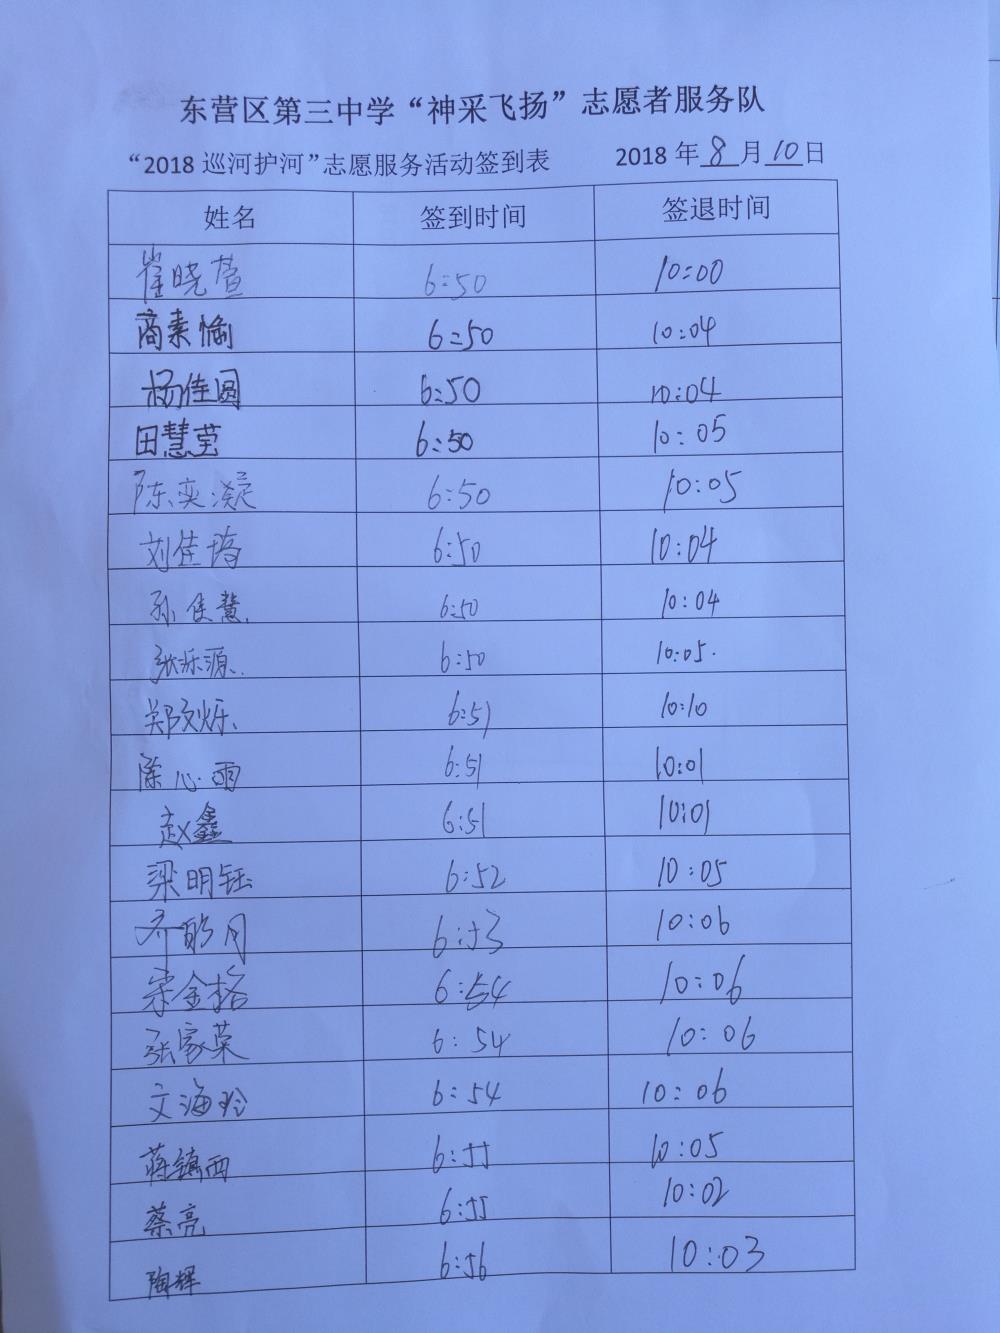 东营区第三中学“神采飞扬”志愿者服务队
“2018巡河护河”志愿服务活动签到表 2018年8月10日
姓名 签到时间 签退时间
崔晓萱 6:50 10:00
商素愉 6:50 10:04
杨佳圆 6:50 10:04
田慧莹 6:50 10:05
陈奕凝 6:50 10:05
刘佳 6:50 10:04
孙佳慧 6:50 10:04
张烁源 6:50 10:05
郑文烁 6:51 10:10
陈心雨 6:51 10:01
赵鑫 6:51 10:01
梁明钰 6:52 10:05
齐明月 6:53 10:06
宋金格 6:54 10:06
张家荣 6:54 10:06
文海玲 6:54 10:06
蒋镇西 6:55 10:05
蔡亮 6:55 10:02
陶辉 6:56 10:03